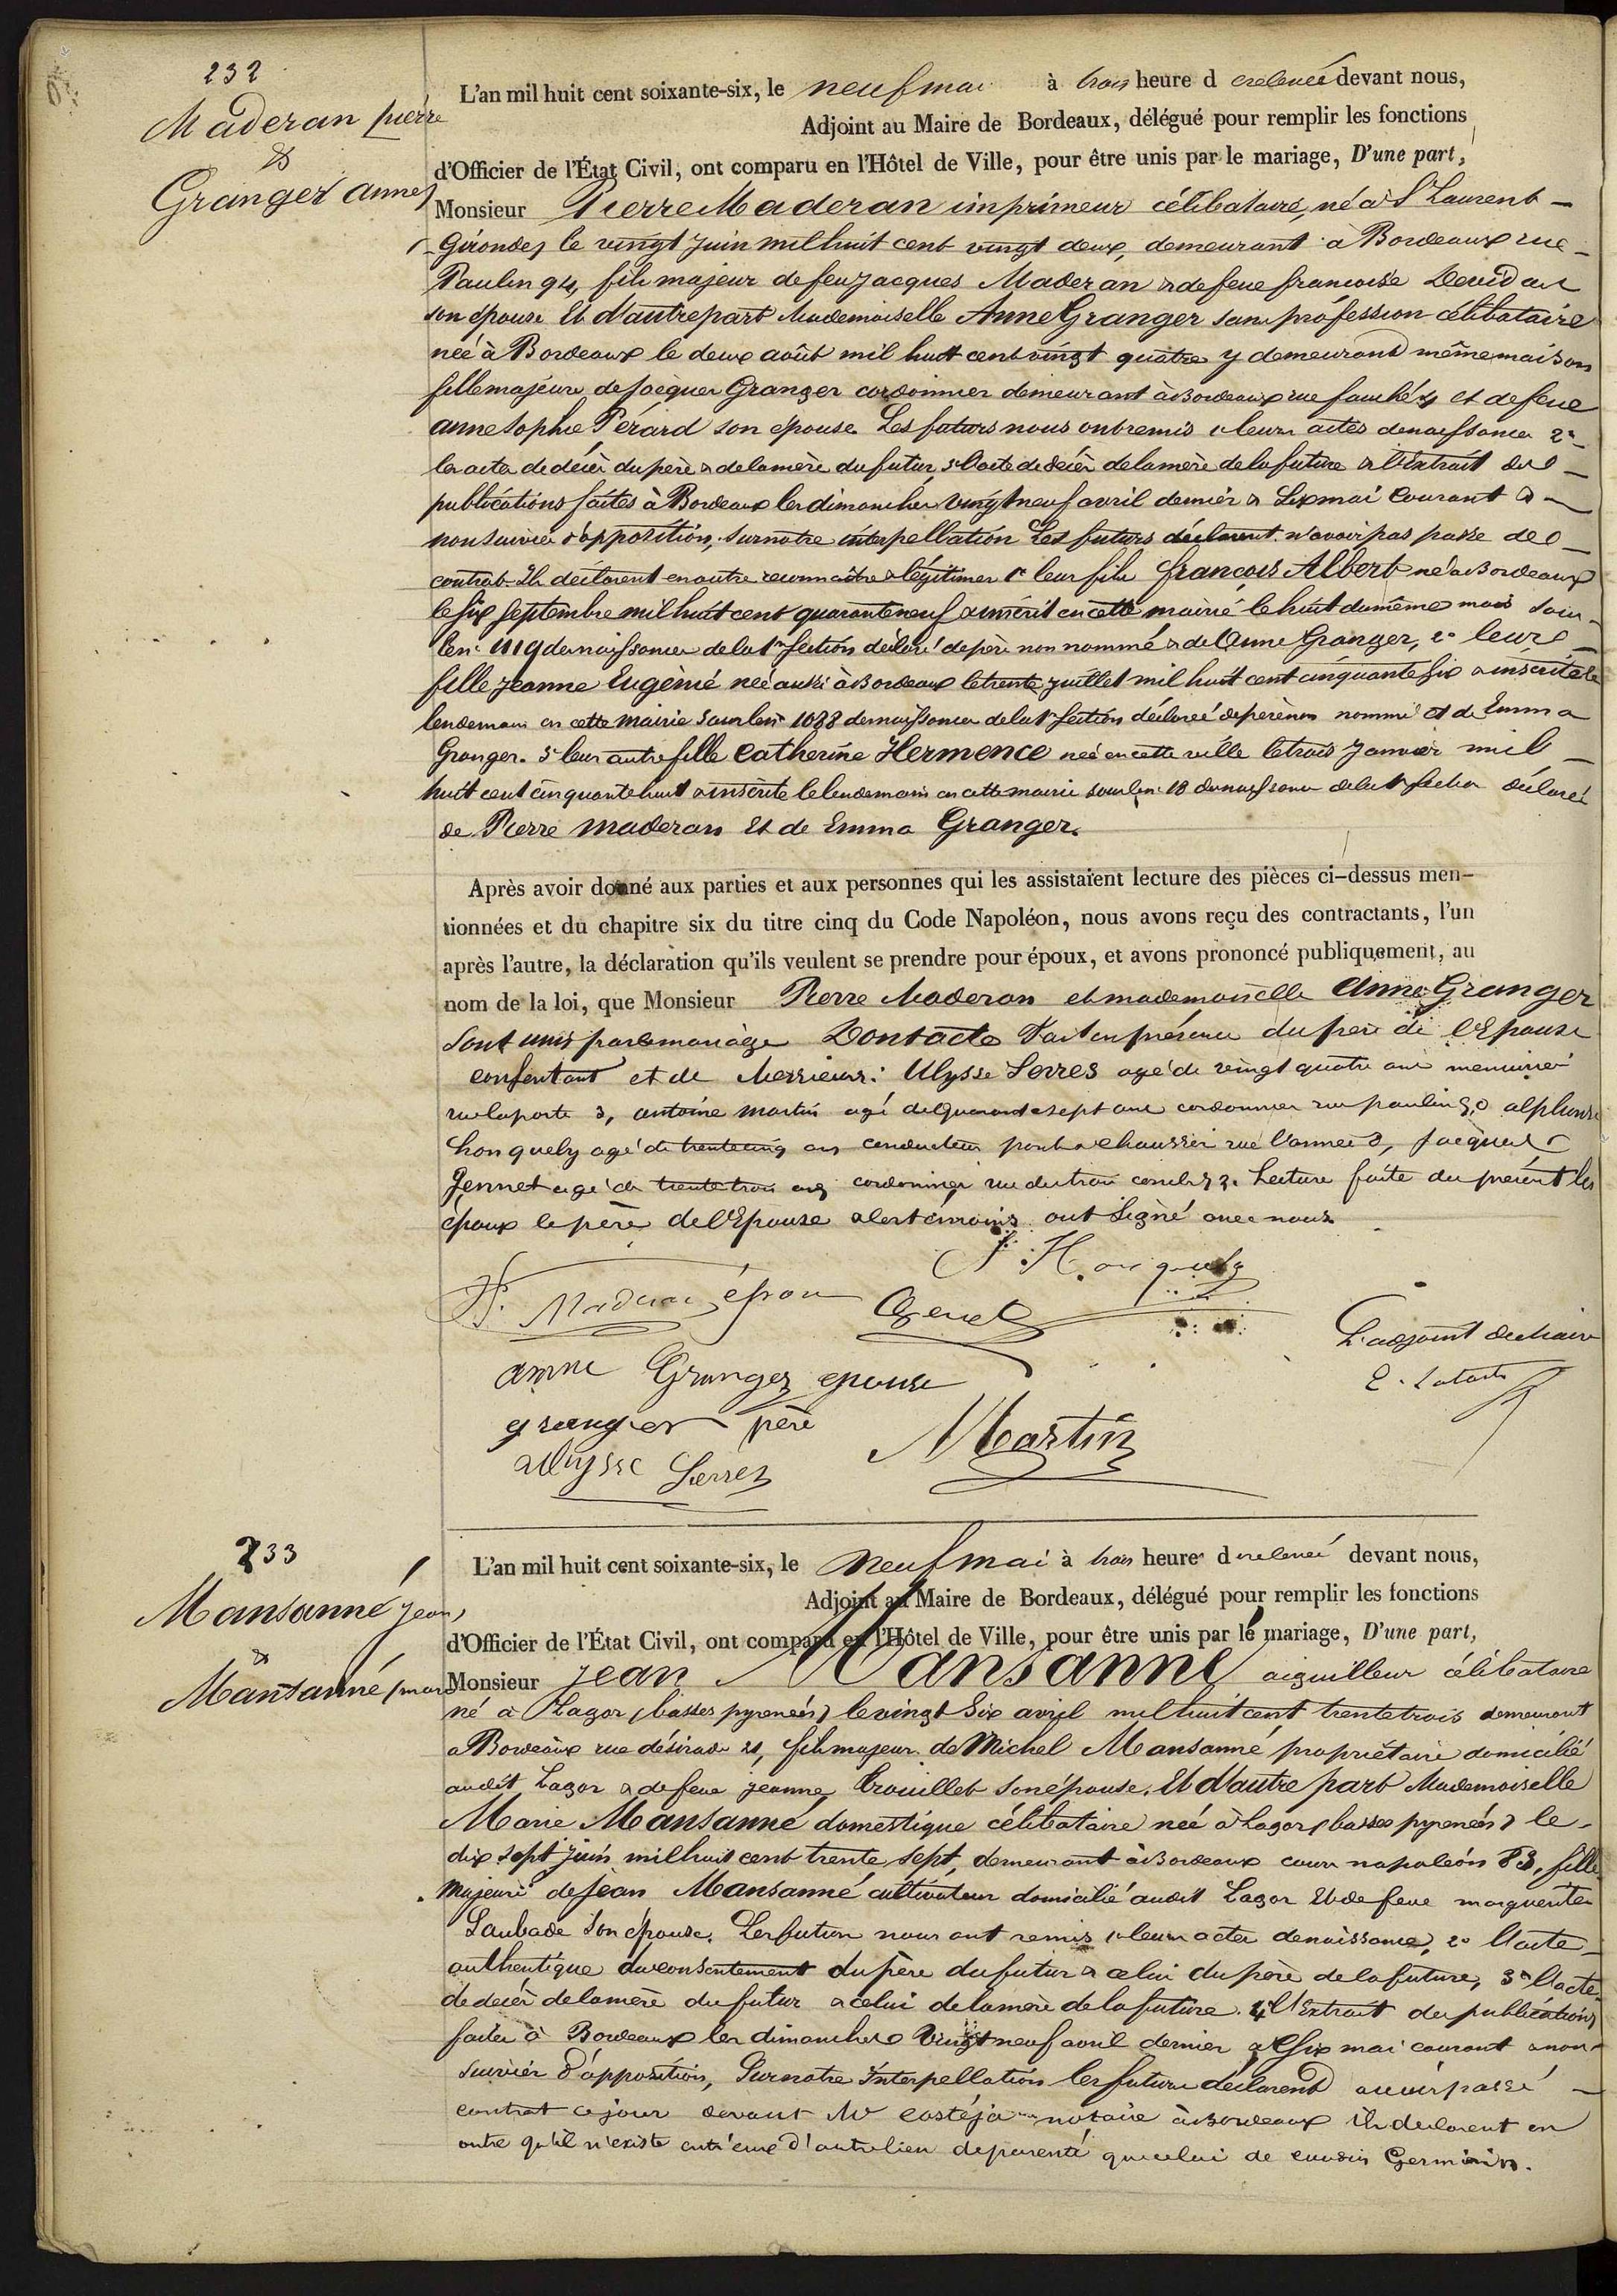 232
Maderan pierre
&
Granger anne
L'an mil huit cent soixante-six, le neuf mai à trois heure d relevée devant nous,
Adjoint au Maire de Bordeaux, délégué pour remplir les fonctions
d'Officier de l'État Civil, ont comparu en l'Hôtel de Ville, pour être unis par le mariage, D'une part,
Monsieur Pierre Maderan imprimeur célibataire, né à St Laurent
Gironde, le vingt juin mil huit cent vingt deux, demeurant à Bordeaux rue
Paulin 94, fils majeur de feu Jacques Maderan & de feue francoise
son épouse Et d'autre part Mademoiselle Anne Granger sans profession célibataire
née à Bordeaux le deux août mil huit cent vingt quatre y demeurant même maison
fille majeure de Jacques Granger cordonnier demeurant à Bordeaux rue et de feue
anne Sophie Pérard son épouse. Les futurs nous ont remis 1° leurs actes de naissance 2°
les actes de décès du père & de la mère du futur, 3° l'acte de décès de la mère de la future & l'Extrait des
publications faites à Bordeaux les dimanches vingt neuf avril dernier & Six mai Courant &
non suivies d'opposition, Sur notre interpellation Les futurs déclarent n'avoir pas passé de
contrat. Ils déclarent en outre reconnaître & légitimer 1° leur fils françois Albert né à Bordeaux
le six septembre mil huit cent quarante neuf & inscrit en cette mairie le huit du même mois sous
le n° 1119 de naissance de la 1re Section déclaré de père non nommé & de Anne Granger, 2° leur
fille Jeanne Eugénie née aussi à Bordeaux le trente juillet mil huit cent cinquante six & inscrite le
lendemain en cette mairie sous le n° 1088 de naissance de la 1re Section déclarée de père non nommé et de Emma
Granger. 3° leur autre fille Catherine Hermence née en cette ville le trois Janvier mil
huit cent cinquante huit & inscrite le lendemain en cette mairie sous le n° 18 de naissance de la 1re Section déclarée
de Pierre Maderan Et de Emma Granger.
Après avoir donné aux parties et aux personnes qui les assistaient lecture des pièces ci-dessus men-
tionnées et du chapitre six du titre cinq du Code Napoléon, nous avons reçu des contractants, l'un
après l'autre, la déclaration qu'ils veulent se prendre pour époux, et avons prononcé publiquement, au
nom de la loi, que Monsieur Pierre Maderan et mademoiselle Anne Granger
Sont unis par le mariage Dont acte Fait en présence du père de l'Epouse
consentant et de Messieurs: Ulysse Serres agé de vingt quatre ans menuisier
rue laporte 3, antoine Martin agé de quarante sept ans cordonnier rue paulin alphonse
agé de trente cinq ans conducteur ponts & chaussées rue Jacques
agé de trente trois ans cordonnier rue des trois conils Lecture faite du présent les
époux le père de l'Epouse & les témoins ont Signé avec nous
P. Maderan époux
anne Granger epouse
granger père
Ulysse Serres
Martin
L'adjoint du Maire
233
Mansanné Jean,
&
Mansanné marie
L'an mil huit cent soixante-six, le neuf mai à trois heure d relevée devant nous,
Adjoint au Maire de Bordeaux, délégué pour remplir les fonctions
d'Officier de l'État Civil, ont comparu en l'Hôtel de Ville, pour être unis par le mariage, D'une part,
Monsieur Jean Mansanné aiguilleur célibataire
né à Lagor (basses pyrenées) le vingt Six avril mil huit cent trente trois demeurant
à Bordeaux rue désirade 21, fils majeur de Michel Mansanné propriétaire domicilié
audit Lagor & de feue Jeanne Trouillet son épouse. Et d'autre part Mademoiselle
Marie Mansanné domestique célibataire née à Lagor (basses pyrenées) le
dix Sept juin mil huit cent trente sept, demeurant à Bordeaux cours napoléon 83, fille
Majeure de Jean Mansanné cultivateur domicilié audit Lagor Et de feue marguerite
Laubade son épouse. Les futurs nous ont remis 1° leurs actes de naissance, 2° l'acte
authentique du consentement du père du futur & celui du père de la future, 3° l'acte
de décès de la mère du futur & celui de la mère de la future. 4° l'Extrait des publications
faites à Bordeaux les dimanches Vingt neuf avril dernier & Six mai courant & non
suivies d'opposition, Sur notre Interpellation les futurs déclarent avoir passé
contrat ce jour devant Me castéja notaire à Bordeaux Ils declarent en
outre qu'il n'existe entr'eux d'autre lien de parenté que celui de cousin Germains.